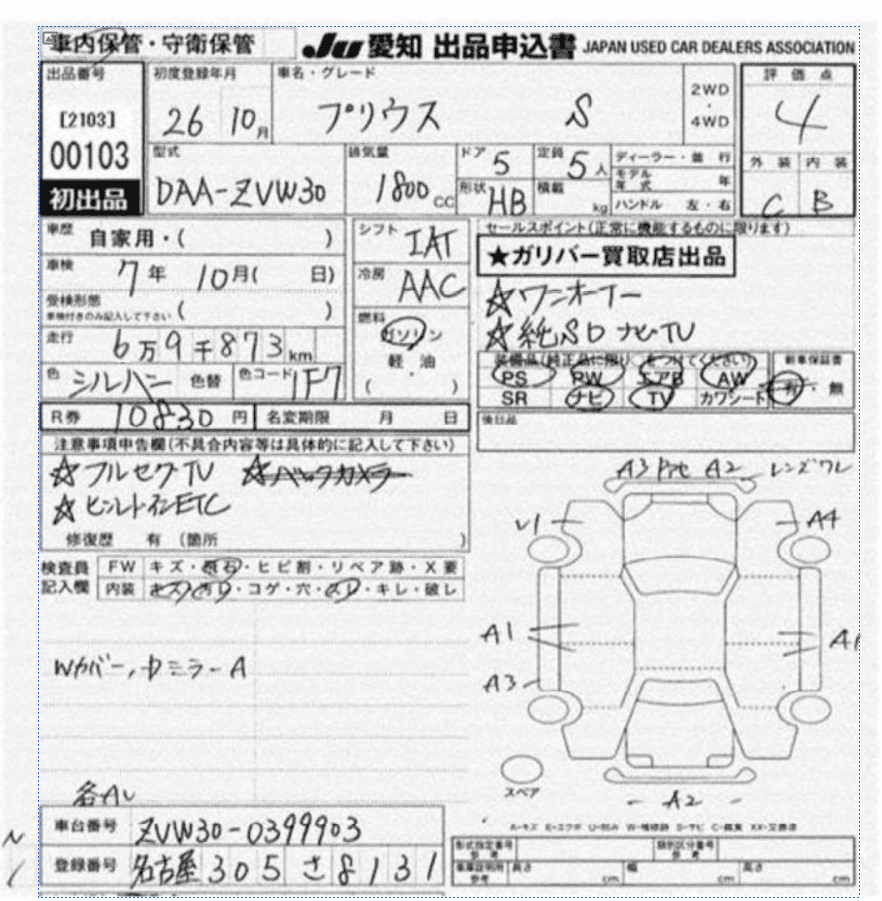 車内保管・守衛保管
JU 愛知 出品申込書 JAPAN USED CAR DEALERS ASSOCIATION
出品番号 初度登録年月 車名・グレード 評価点
[2103] 26 10月 プリウス S 2WD ・ 4WD 4
00103 型式 排気量 ドア 5 定員 5人 ディーラー・並行 外装 内装
初出品 DAA-ZVW30 1800CC 形状 HB 積載 kg モデル年式 年 C B
ハンドル 左・右
車歴 自家用・( ) シフト IAT セールスポイント(正常に機能するものに限ります)
車検 7年 10月( 日) 冷房 AAC ★ガリバー買取店出品
受検形態 ( ) ☆ワンオーナー
車検付きのみ記入して下さい 燃料 ☆純SDナビTV
走行 6万9千873km ガソリン
色 シルバー 色替 色コード 1F7 軽・油
( )
装備品(純正品に限り○をつけてください) 新車保証書
PS PW エアB AW 有・無
SR ナビ TV カワシート
R券 10830円 名変期限 月 日 後日品
注意事項申告欄(不具合内容等は具体的に記入して下さい)
☆フルセグTV ☆バックカメラー
☆ビルトインETC
修復歴 有 (箇所 )
A3 A2 レンズワレ
U1 A4
検査員記入欄 FW キズ・飛石・ヒビ割・リペア跡・X要
内装 キズ・汚レ・コゲ・穴・スレ・キレ・破レ
A1 A1
Wカバー,中ミラーA
A3
スペア
各AL
A2
A-キズ E-エクボ U-凹み W-補修跡 S-サビ C-腐食 XX-交換済
車台番号 ZVW30-0399903
登録番号 名古屋 305 さ 8131
形式指定番号 参考 類別区分番号 参考
車庫証明用 参考 長さ cm 幅 cm 高さ cm